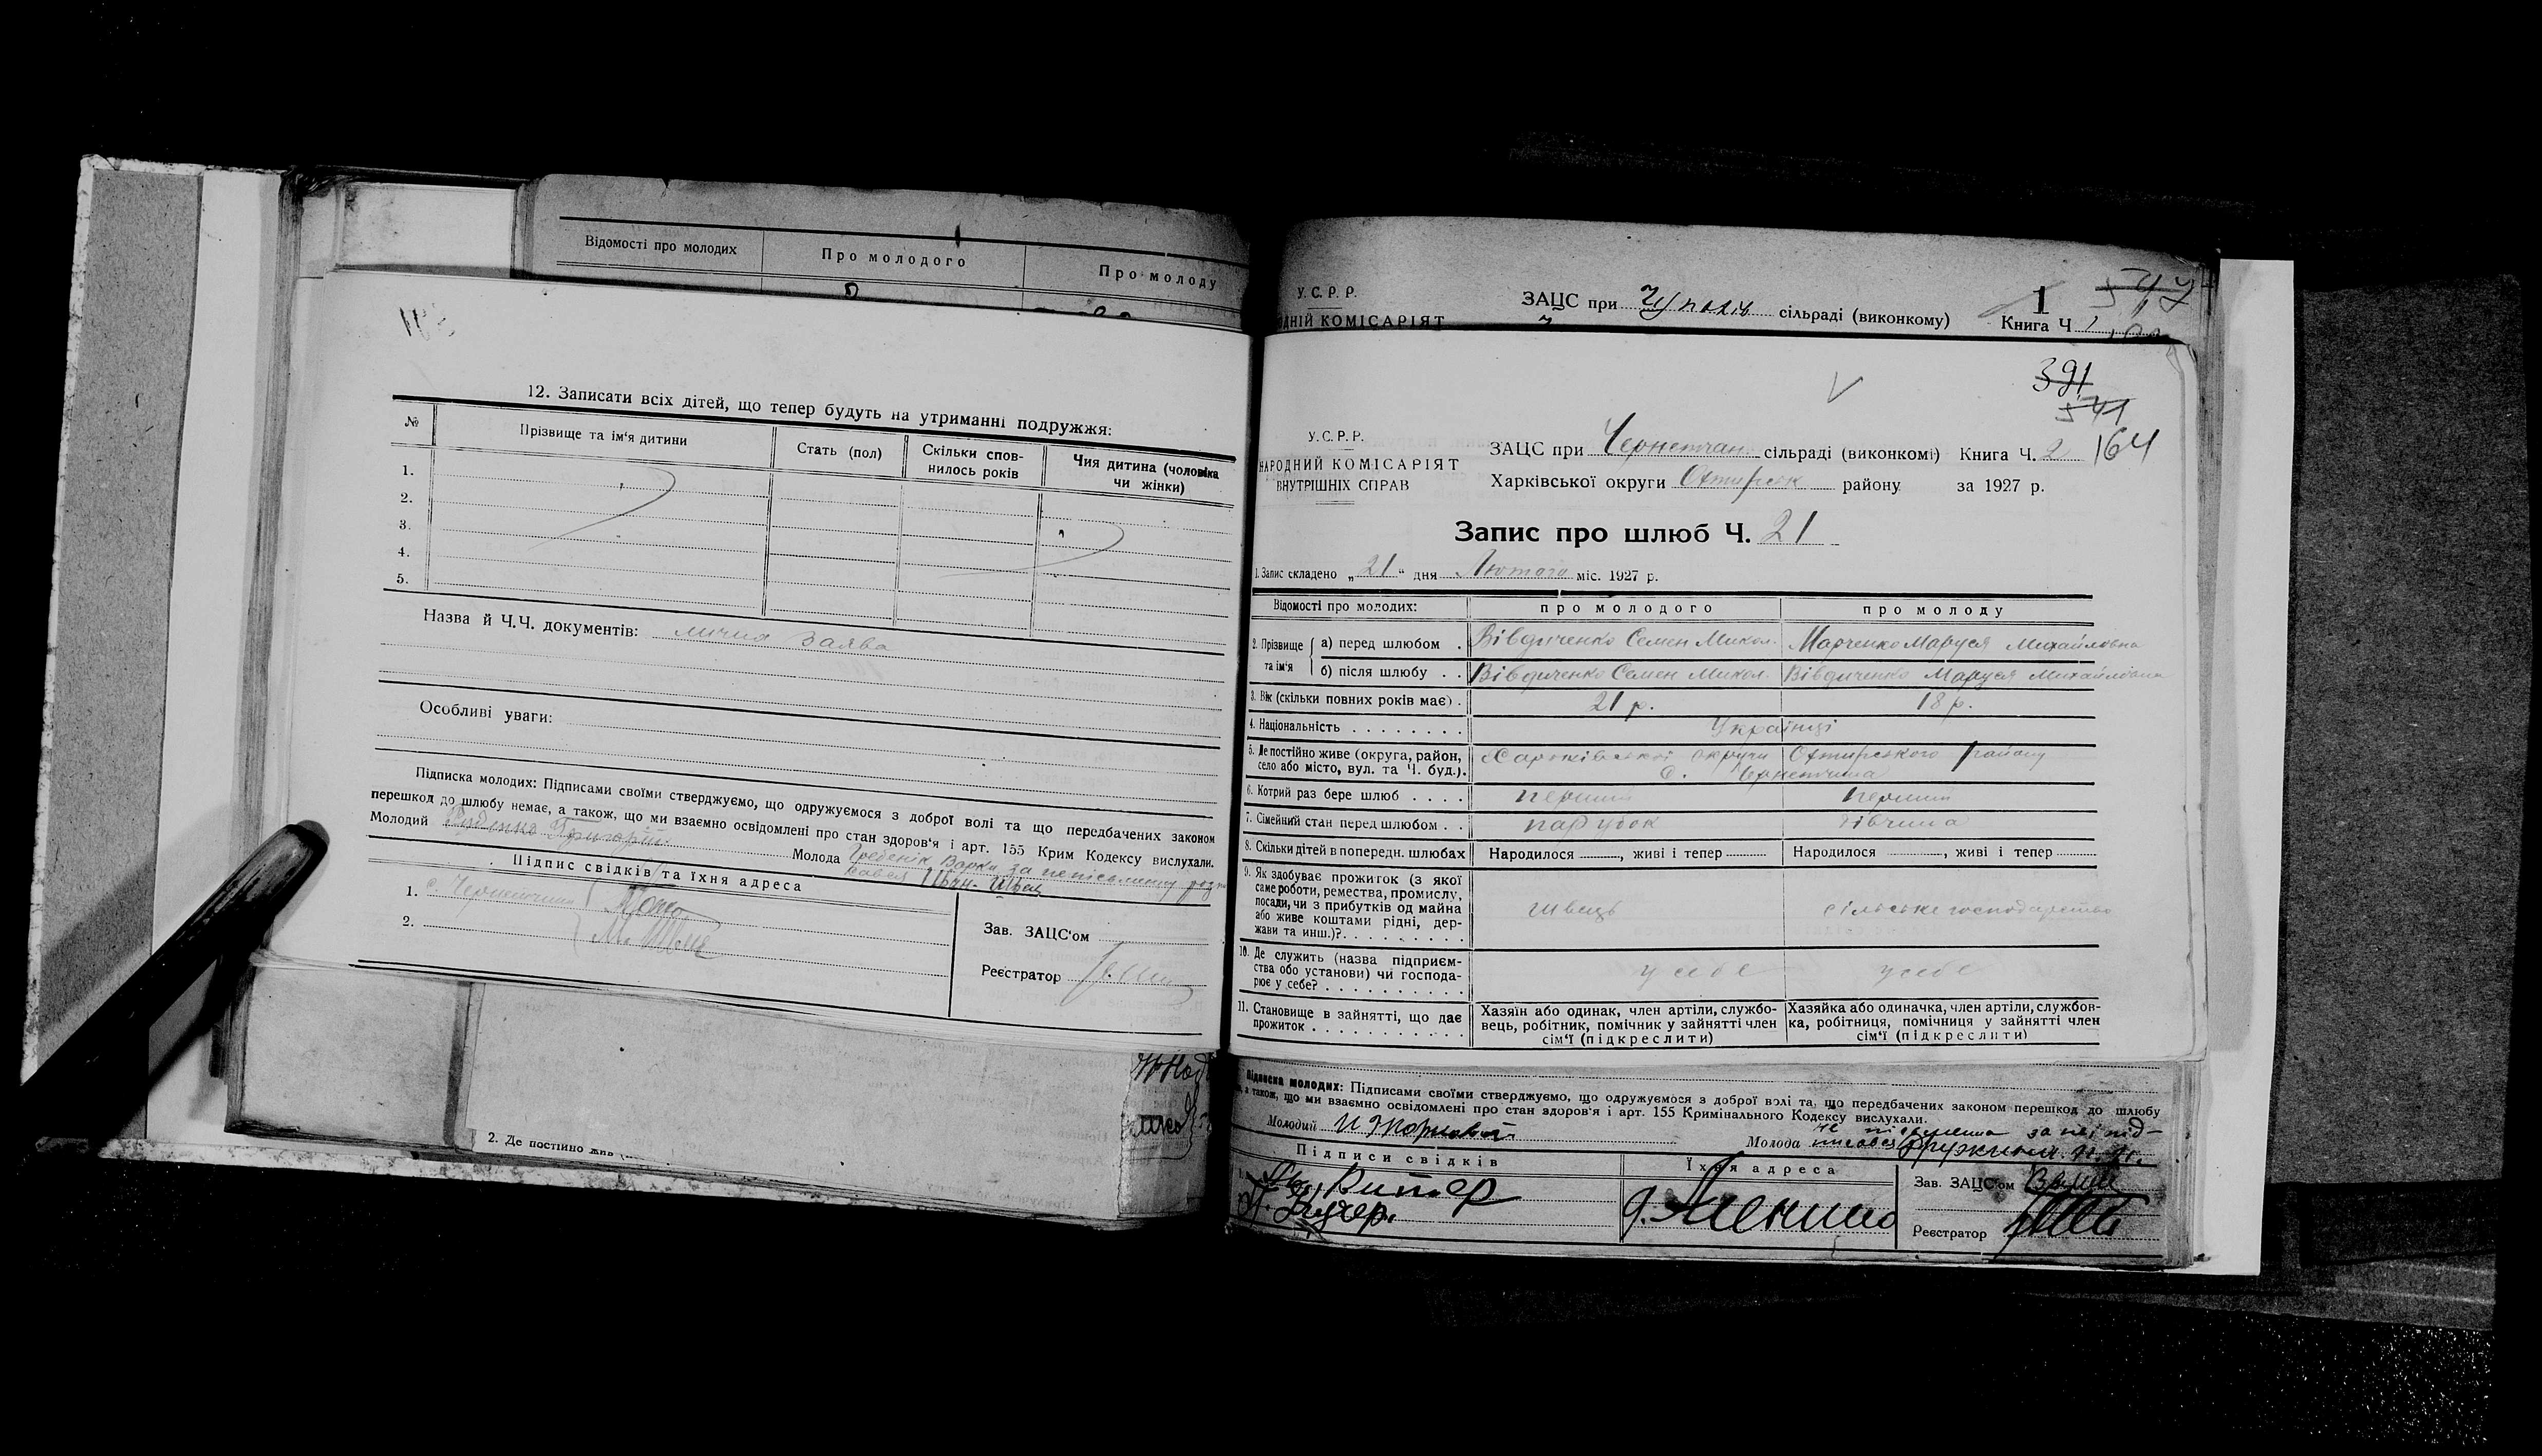 Відомості про молодих
Про молодого
Про молоду
12. Записати всіх дітей, що тепер будуть на утриманні подружжя:
№
Прізвище та ім'я дитини
Стать (пол)
Скільки спов-
нилось років
Чия дитина (чоловіка
чи жінки)
1.
2.
3.
4.
5.
Назва й Ч.Ч. документів: лична заява
Особливі уваги:
Підписка молодих: Підписами своїми стверджуємо, що одружуємося з доброї волі та що передбачених законом
перешкод до шлюбу немає, а також, що ми взаємно освідомлені про стан здоров'я і арт. 155 Крим Кодексу вислухали.
Молодий Руденко Григорій Молода
Підпис свідків та їхня адреса
1. с.
2.
Зав. ЗАЦС'ом
Реєстратор
2. Де постійно жив
У.С.Р.Р.
ЗАЦС при сільраді (виконкому)
1
547
Книга Ч
КОМІСАРІЯТ
391
541
164
У.С.Р.Р.
НАРОДНИЙ КОМІСАРІЯТ
ВНУТРІШНІХ СПРАВ
ЗАЦС при Чернетчан. сільраді (виконкомі) Книга Ч. 2
Харківської округи Охтирськ району за 1927 р.
Запис про шлюб Ч. 21
1. Запис складено „21" дня Лютого міс. 1927 р.
Відомості про молодих:
про молодого
про молоду
2. Прізвище та ім'я
а) перед шлюбом . Вівдиченко Семен Микол. Марченко Маруся Михайловна
б) після шлюбу . . Вівдиченко Семен Микол. Вівдиченко Маруся Михайловна
3. Вік (скільки повних років має) . 21 р. 18 р.
4. Національність . . . . . . . . Українці
5. Де постійно живе (округа, район,
село або місто, вул. та Ч. буд.).
Харківської округи Охтирського району
с. Чернетчина
6. Котрий раз бере шлюб . . . . перший перший
7. Сімейний стан перед шлюбом . . парубок дівчина
8. Скільки дітей в попередн. шлюбах Народилося , живі і тепер Народилося , живі і тепер
9. Як здобуває прожиток (з якої
саме роботи, ремества, промислу,
посади, чи з прибутків од майна
або живе коштами рідні, дер-
жави та инш.)?. . . . . . . . .
швець
сільське господарство
10. Де служить (назва підприєм-
ства обо установи) чи господа-
рює у себе? . . . . . . . . . .
у себе
у себе
11. Становище в зайнятті, що дає
прожиток . . . . . . . . . . .
Хазяїн або одинак, член артіли, службо-
вець, робітник, помічник у зайнятті член
сім'ї (підкреслити)
Хазяйка або одиначка, член артіли, службов-
ка, робітниця, помічниця у зайнятті член
сім'ї (підкреслити)
Підписка молодих: Підписами своїми стверджуємо, що одружуємося з доброї волі та, що передбачених законом перешкод до шлюбу
а також, що ми взаємно освідомлені про стан здоров'я і арт. 155 Кримінального Кодексу вислухали.
Молодий
Молода
Підписи свідків
Їхня адреса
Зав. ЗАЦС'ом
Реєстратор